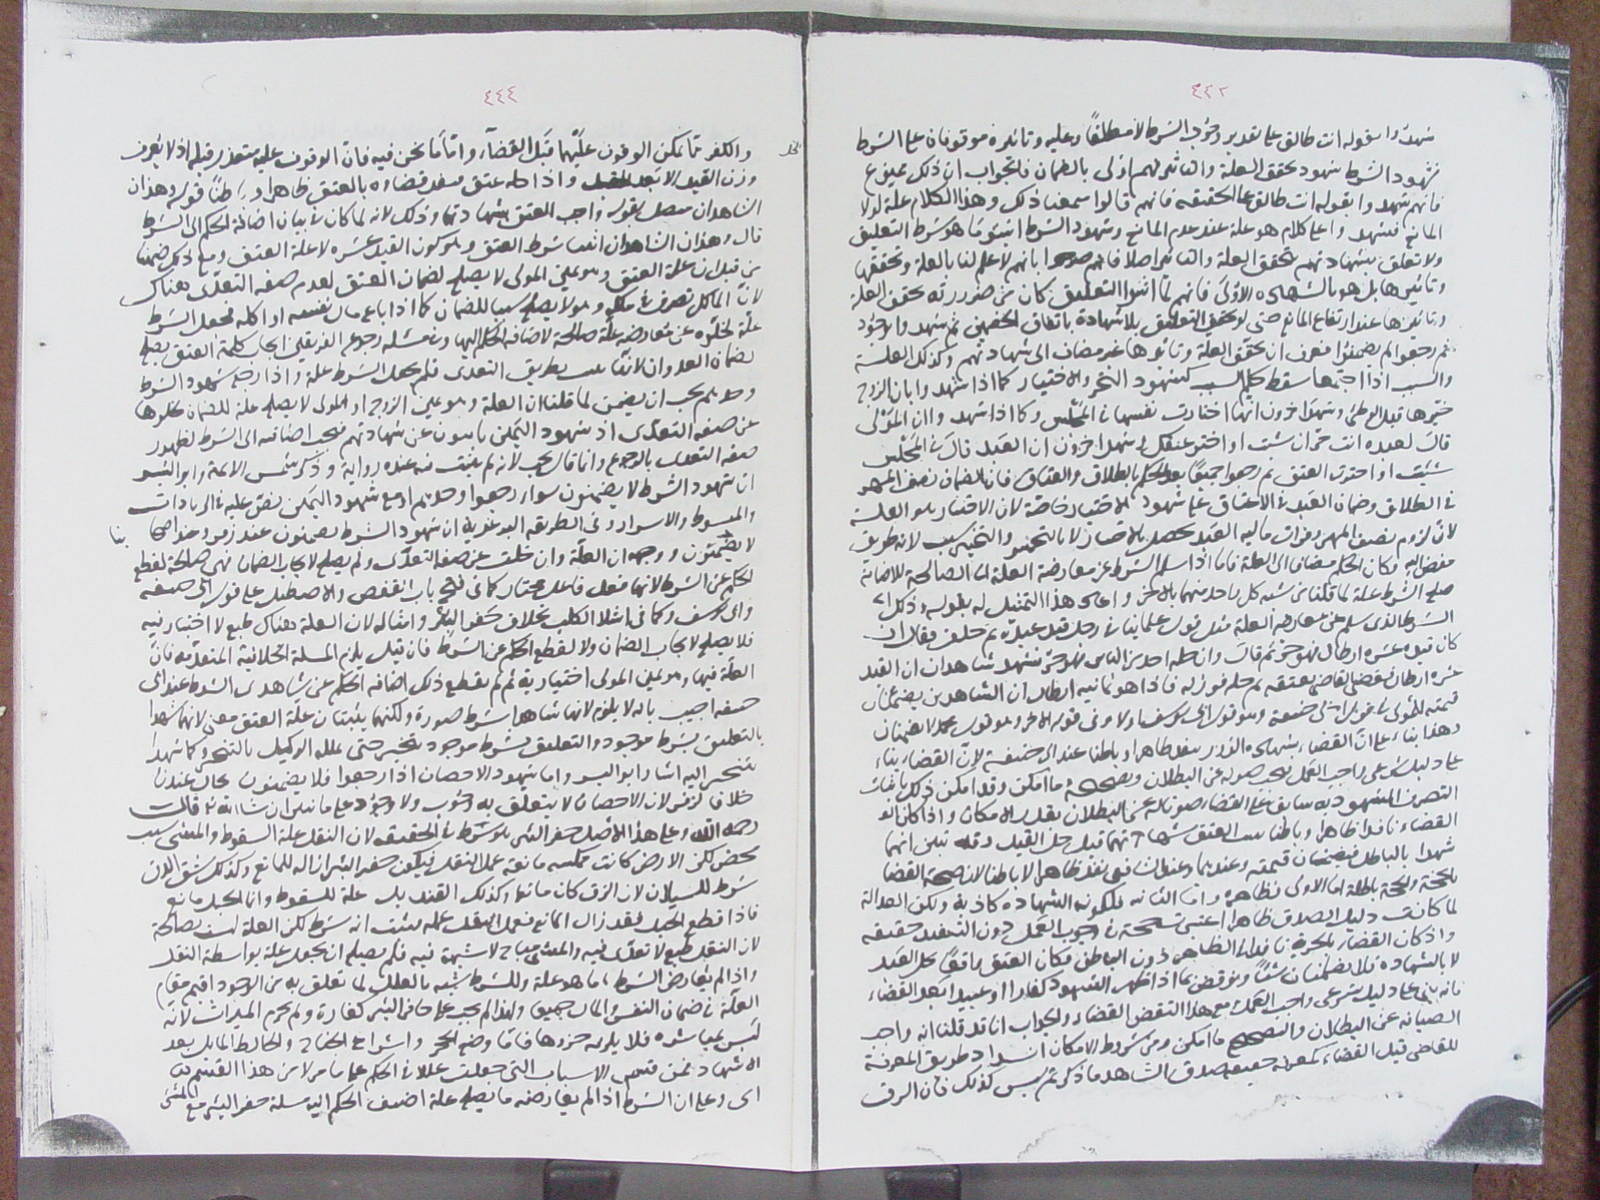 ٤٤٢
شهدوا بقوله انت طالق على تقدير وجود الشرط لا مطلقا وعليه وتاثيره موقوفان على الشرط
فشهود الشرط شهود تحقق العلة والتاثير فهم اولى بالضمان فالجواب ان ذلك ممنوع
فانهم شهدوا بقوله انت طالق على الحقيقة فانهم قالوا سمعنا ذلك وهذا الكلام علة لولا
المانع فشهدوا على كلام هو علة عند عدم المانع وشهود الشرط اثبتوا ما هو شرط التعليق
ولا تعلق بشهادتهم بتحقق العلة والتاثير اصلا فانهم بانهم لا علم لنا بالعلة وتحققها
وتاثيرها بل هو بالشهادة الاولى فانهم لما اثبتوا التعليق كان من ضرورته تحقق العلة
وتاثيرها عند ارتفاع المانع حتى لو تحقق التعليق بلا شهادة باتفاق الخصمين ثم شهدوا بالوجود
ثم رجعوا لم يضمنوا فعرف ان تحقق العلة وتاثيرها غير مضاف الى شهادتهم وكذلك العلة
والسبب اذا اجتمعا سقط حكم السبب كشهود التخيير والاختيار كما اذا شهدوا بان الزوج
خيرها قبل الوطئ وشهد اخرون انها اختارت نفسها في المجلس وكما اذا شهدوا ان المولى
قال لعبده انت حر ان شئت او اختر عتقك وشهد اخرون ان العبد قال في المجلس
شئت او اخترت العتق ثم رجعوا جميعا بعد الحكم بالطلاق والعتاق فان الضمان نصف المهر
في الطلاق وضمان العبد في الاعتاق على شهود الاختيار خاصة لان الاختيار هو العلة
لان لزوم نصف المهر وفوات مالية العبد يحصل بالاختيار لا بالتخيير والتخيير سبب لانه طريق
مفض اليه فكان الحكم مضافا الى العلة فاما اذا سلم الشرط عن معارضة العلة الصالحة للاضافة
صلح الشرط علة لما قلنا من شبه كل واحد منهما بالاخر وهذا التمثيل له بقوله وذلك اي
الشرط الذي سلم عن معارضة العلة مثل قول علمائنا في رجل قيد عبده ثم حلف فقال ان
كان قيده عشرة ارطال فهو حر ثم قال وان حله احد من الناس فهو حر فشهد شاهدان ان القيد
عشرة ارطال فقضى القاضي بعتقه ثم حله فوزنه فاذا هو ثمانية ارطال ان الشاهدين يضمنان
قيمته للمولى عند ابي حنيفة وهو قول ابي يوسف اولا وفي قوله الاخر وهو قول محمد لا يضمنان
وهذا بناء على ان القضاء بشهادة الزور ينفذ ظاهرا وباطنا عند ابي حنيفة لان القضاء بناء
على دليل شرعي واجب العمل فيجب صونه عن البطلان وتصحيحه ما امكن وقد امكن ذلك باثبات
التصرف المشهود به سابقا على القضاء صونا له عن البطلان بقدر الامكان واذا كان
القضاء نافذا ظاهرا وباطنا العتق قبل حل القيد وقد تبين انهما
شهدا بالباطل فيضمنان قيمته وعندهما وعند الشافعي ينفذ ظاهرا لا باطنا لان صحة القضاء
بالحجة والحجة باطلة اما الاولى فظاهرة واما الثانية فلكون الشهادة كاذبة ولكن العدالة
لما كانت دليل الصدق ظاهرا اعتبرت حجة في وجوب العمل دون التنفيذ حقيقة
واذا كان القضاء بالحرية نافذا في الظاهر دون الباطن فكان العتق واقعا بحل القيد
لا بالشهادة فلا يضمنان شيئا ونوقض بما اذا ظهر الشهود كفارا او عبيدا بعد القضاء
فانه بني على دليل شرعي واجب العمل مع هذا انتقض القضاء والجواب انا قد قلنا انه واجب
الصيانة عن البطلان والتصحيح ما امكن ومن شروط الامكان انسداد طريق المعرفة
للقاضي قبل القضاء كمعرفة حقيقة صدق الشاهد وما ذكرتم ليس كذلك فان الرق
٤٤٤
والكفر مما يمكن الوقوف عليهما قبل القضاء واما ما نحن فيه فان الوقوف عليه متعذر قبله اذ لا يعرف
وزن القيد الا بعد الحل واذا حله عتق فنفذ قضاؤه بالعتق ظاهرا وباطنا قوله وهذان
الشاهدان متصل بقوله واجب العتق بشهادتهما وذلك لانه لما كان في بيان اضافة الحكم الى الشرط
قال وهذان الشاهدان اثبتا شرط العتق وهو كون القيد عشرة لا علة العتق ومع ذلك ضمنا
من قبل ان علة العتق وهو يمين المولى لا يصلح لضمان العتق لعدم صفة التعدي هناك
لان المالك تصرف في ملكه وهو لا يصلح سببا للضمان كما اذا باع مال نفسه او اكله فجعل الشرط
علة لخلوه عن معارضة علة صالحة لاضافة الحكم اليها وفي مسئلة رجوع الفريقين ايجاب كلمة العتق يصلح
لضمان العدوان لانها بطريق التعدي فلم يجعل الشرط علة واذا رجع شهود الشرط
وحدهم يجب ان يضمن لما قلنا ان العلة وهو يمين الزوج او المولى لا يصلح علة للضمان لخلوها
عن صفة التعدي اذ شهود اليمين ثابتون على شهادتهم فيجب اضافته الى الشرط لظهور
صفة التعدي بالرجوع وانما قال يجب لانه لم يثبت فيه عنده رواية وذكر شمس الائمة وابو اليسر
ان شهود الشرط لا يضمنون سواء رجعوا وحدهم او مع شهود اليمين نص عليه في الزيادات
والمبسوط والاسرار وفي الطريقة البرغرية ان شهود الشرط يضمنون عند زفر وعند اصحابنا
لا يضمنون ووجهه ان العلة وان خلت عن صفة التعدي ولم يصلح لايجاب الضمان فهي صالحة لقطع
الحكم عن الشرط لانها فعل فاعل مختار كما في فتح باب القفص والاصطبل على قول ابي حنيفة
وابي يوسف وكما في اشلاء الكلب بخلاف حفر البئر وامثاله لان العلة هناك طبع لا اختيار فيه
فلا يصلح لايجاب الضمان ولا لقطع الحكم عن الشرط فان قيل يلزم المسئلة الخلافية المتقدمة فان
العلة فيها وهو يمين المولى اختيارية ثم لم يقطع ذلك اضافة الحكم عن شاهدي الشرط عند ابي
حنيفة اجيب بانه لا يلزم لانهما شاهدا شرط صورة ولكنهما يثبتان علة العتق معنى لانهما شهدا
بالتعليق بشرط موجود والتعليق بشرط موجود تنجيز حتى الوكيل بالتنجيز وكما شهدا
بتنجيز اليه اشار ابو اليسر واما شهود الاحصان اذا رجعوا فلا يضمنون بحال عندنا
خلافا لزفر لان الاحصان لا يتعلق به وجوب ولا وجود على ما نبين ان شاء الله قال
رحمه الله وعلى هذا الاصل حفر البئر هو شرط في الحقيقة لان الثقل علة السقوط والمشي سبب
محض لكن الارض كانت ممسكة مانعة عمل الثقل فيكون حفر البئر ازالة للمانع وكذلك شق الزق
شرط للسيلان لان الزق كان مانعا وكذلك القنديل علة للسقوط وانما الحبل مانع
فاذا قطع الحبل فقد زال المانع فعمل الثقل عمله فثبت انه شرط لكن العلة ليست بصالحة
لان الثقل طبع لا تعدي فيه والمشي مباح لا شبهة فيه فلم يصلح ان يجعل علة بواسطة الثقل
واذا لم يعارض الشرط ما هو علة وللشرط شبه بالعلل لما تعلق به من الوجود اقيم مقام
العلة في ضمان النفس والمال جميعا ولهذا لم يجب على حافر البئر كفارة ولم يحرم الميراث لانه
ليس بمباشرة فلا يلزمه جزاؤها فاما وضع الحجر واشراع الجناح والحائط المائل بعد
الاشهاد فمن قسم الاسباب التي جعلت عللا في الحكم على ما مر لا من هذا القسم
اي وعلى ان الشرط اذا لم يعارضه ما يصلح علة اضيف الحكم اليه مسئلة حفر البئر مع المشي